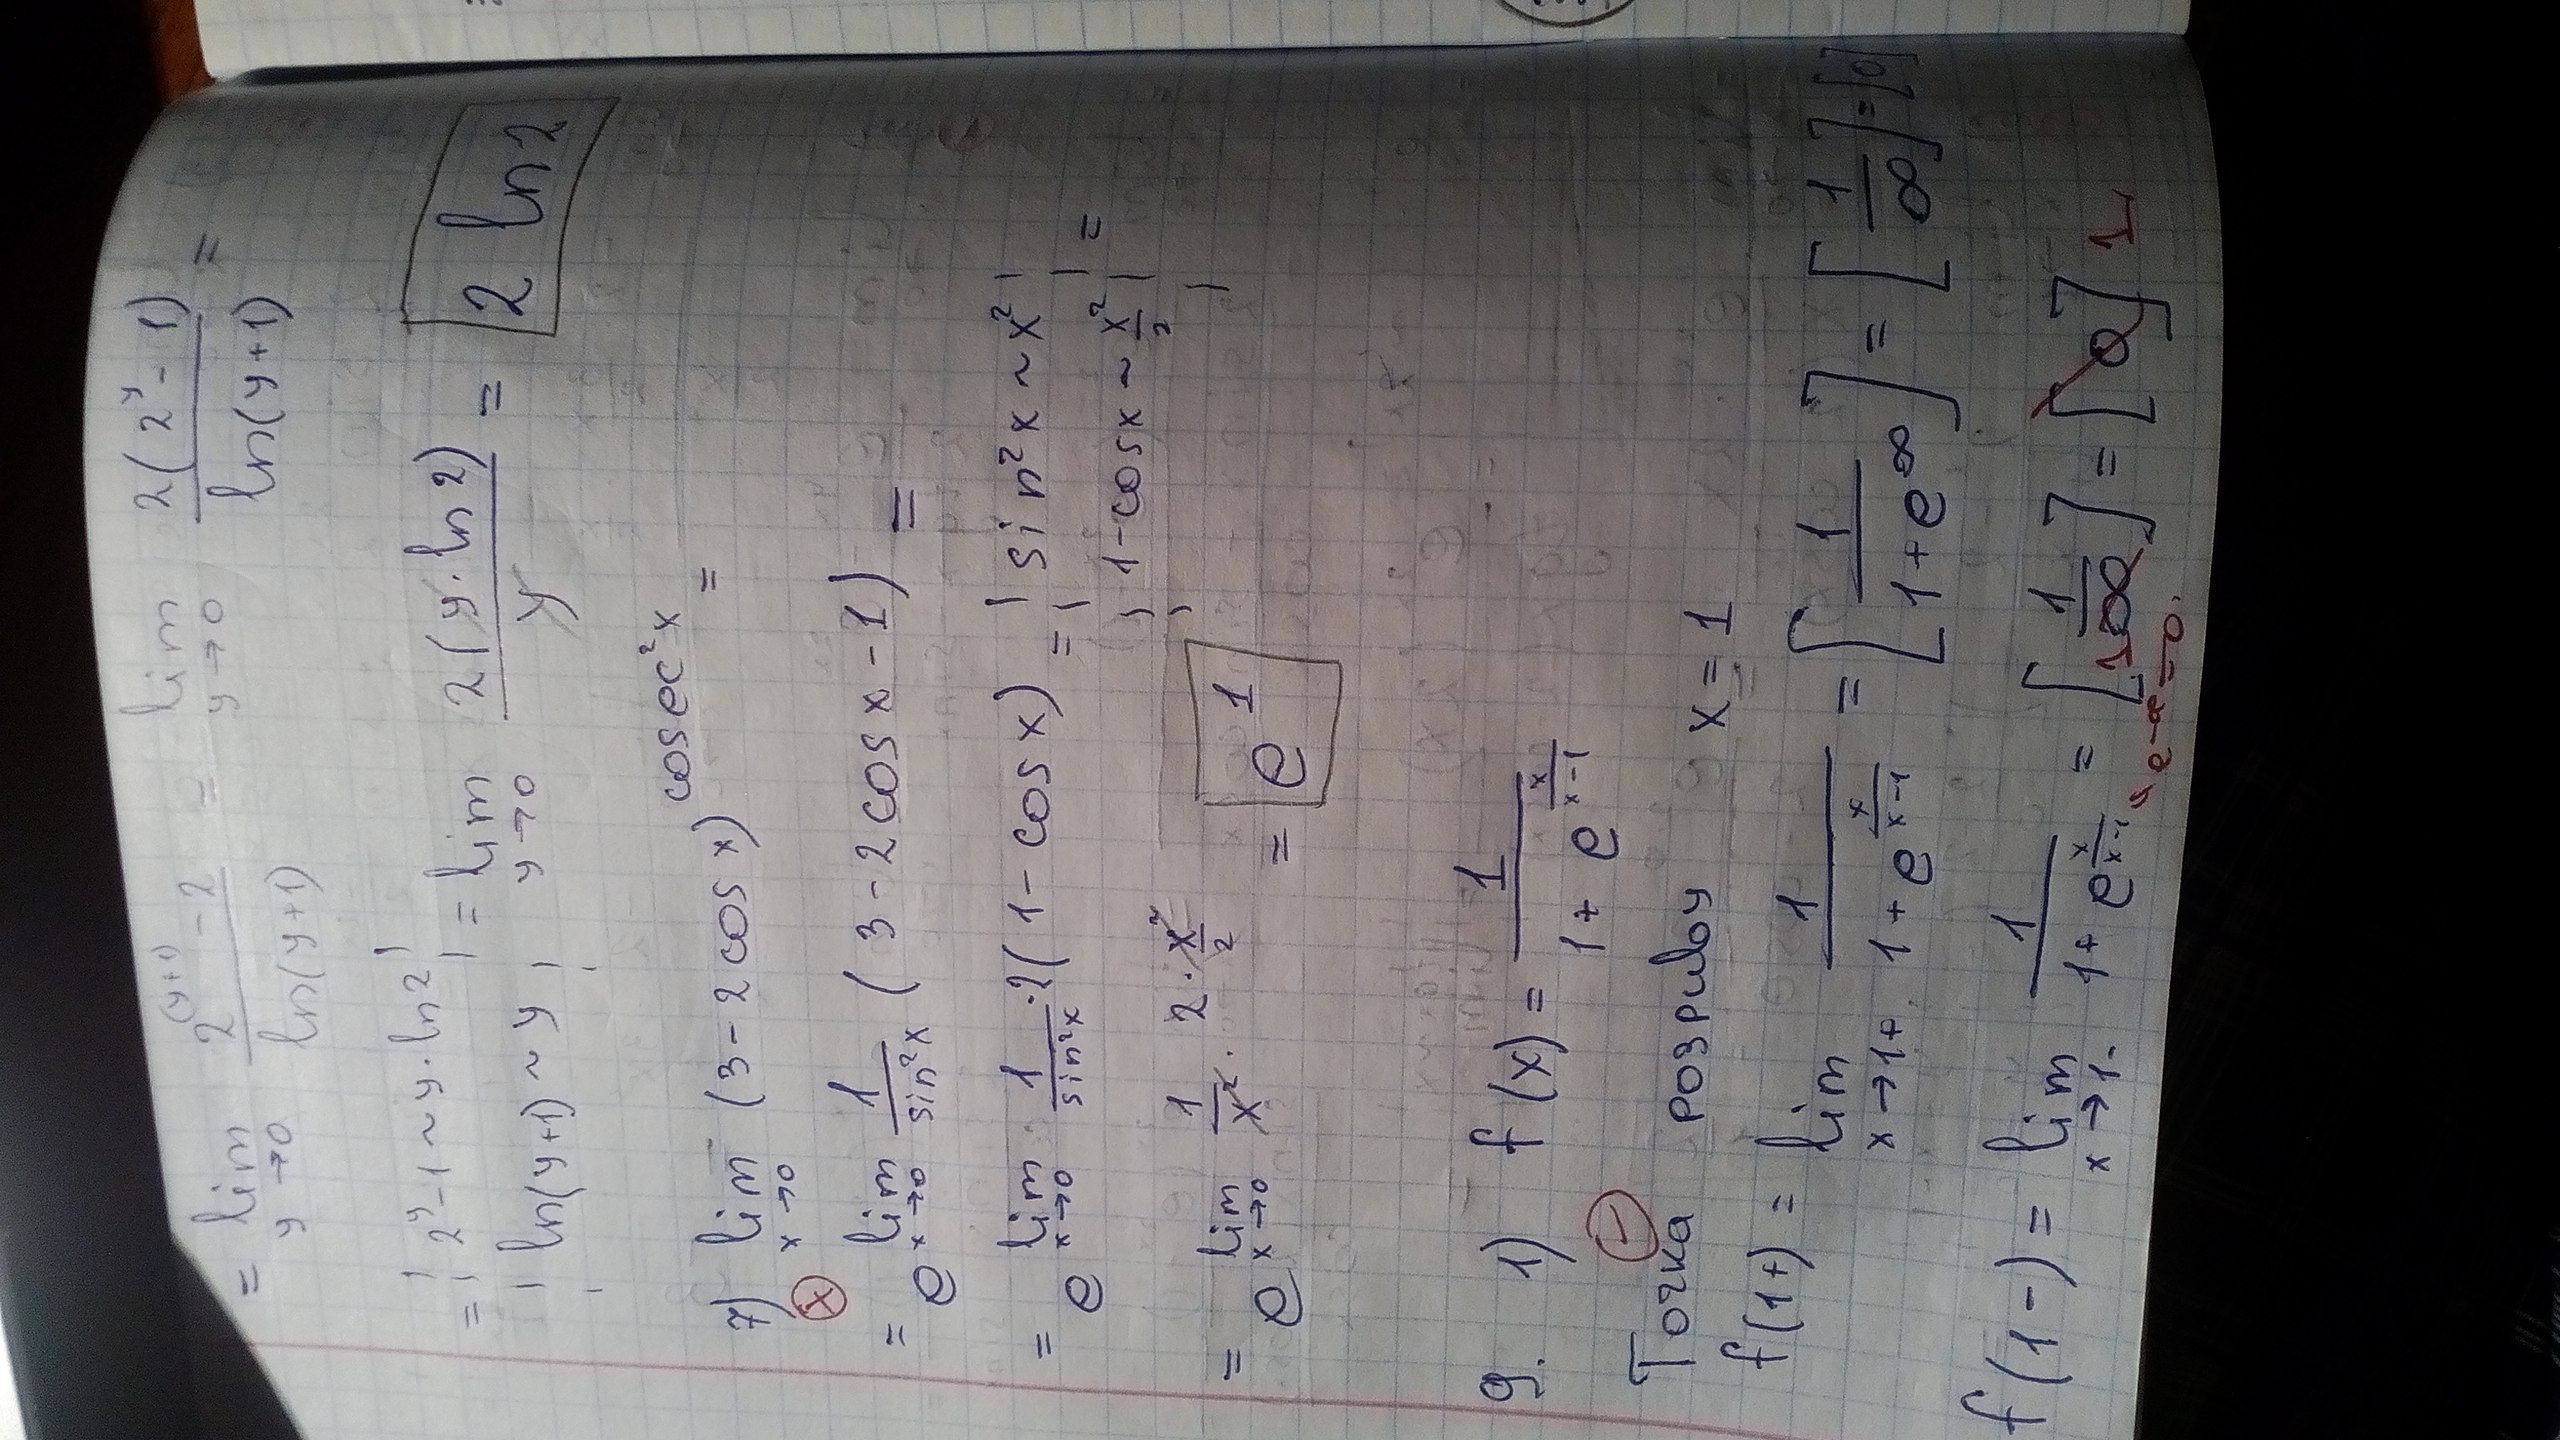 = lim y→0 (2^(y+1) - 2)/(ln(y+1)) = lim y→0 (2(2^y - 1))/(ln(y+1)) =
= | 2^y - 1 ~ y · ln 2 | = lim y→0 (2(y · ln 2))/y = 2 ln 2
| ln(y+1) ~ y |
7) lim x→0 (3 - 2cos x)^(cosec²x) =
x
= e^(lim x→0 1/(sin²x) (3 - 2cos x - 1)) =
= e^(lim x→0 1/(sin²x) · 2(1 - cos x)) = | sin²x ~ x² | =
| 1 - cos x ~ x²/2 |
= e^(lim x→0 1/x² · 2 · x²/2) = e^1
9. 1) f(x) = 1/(1 + e^(x/(x-1)))
−
Точка розриву x = 1
f(1+) = lim x→1+ 1/(1 + e^(x/(x-1))) = [1/(1 + e^∞)] = [1/∞] = [0]
f(1-) = lim x→1- 1/(1 + e^(x/(x-1))) = [1/∞] = [0] 1
1
e^-∞ = 0.